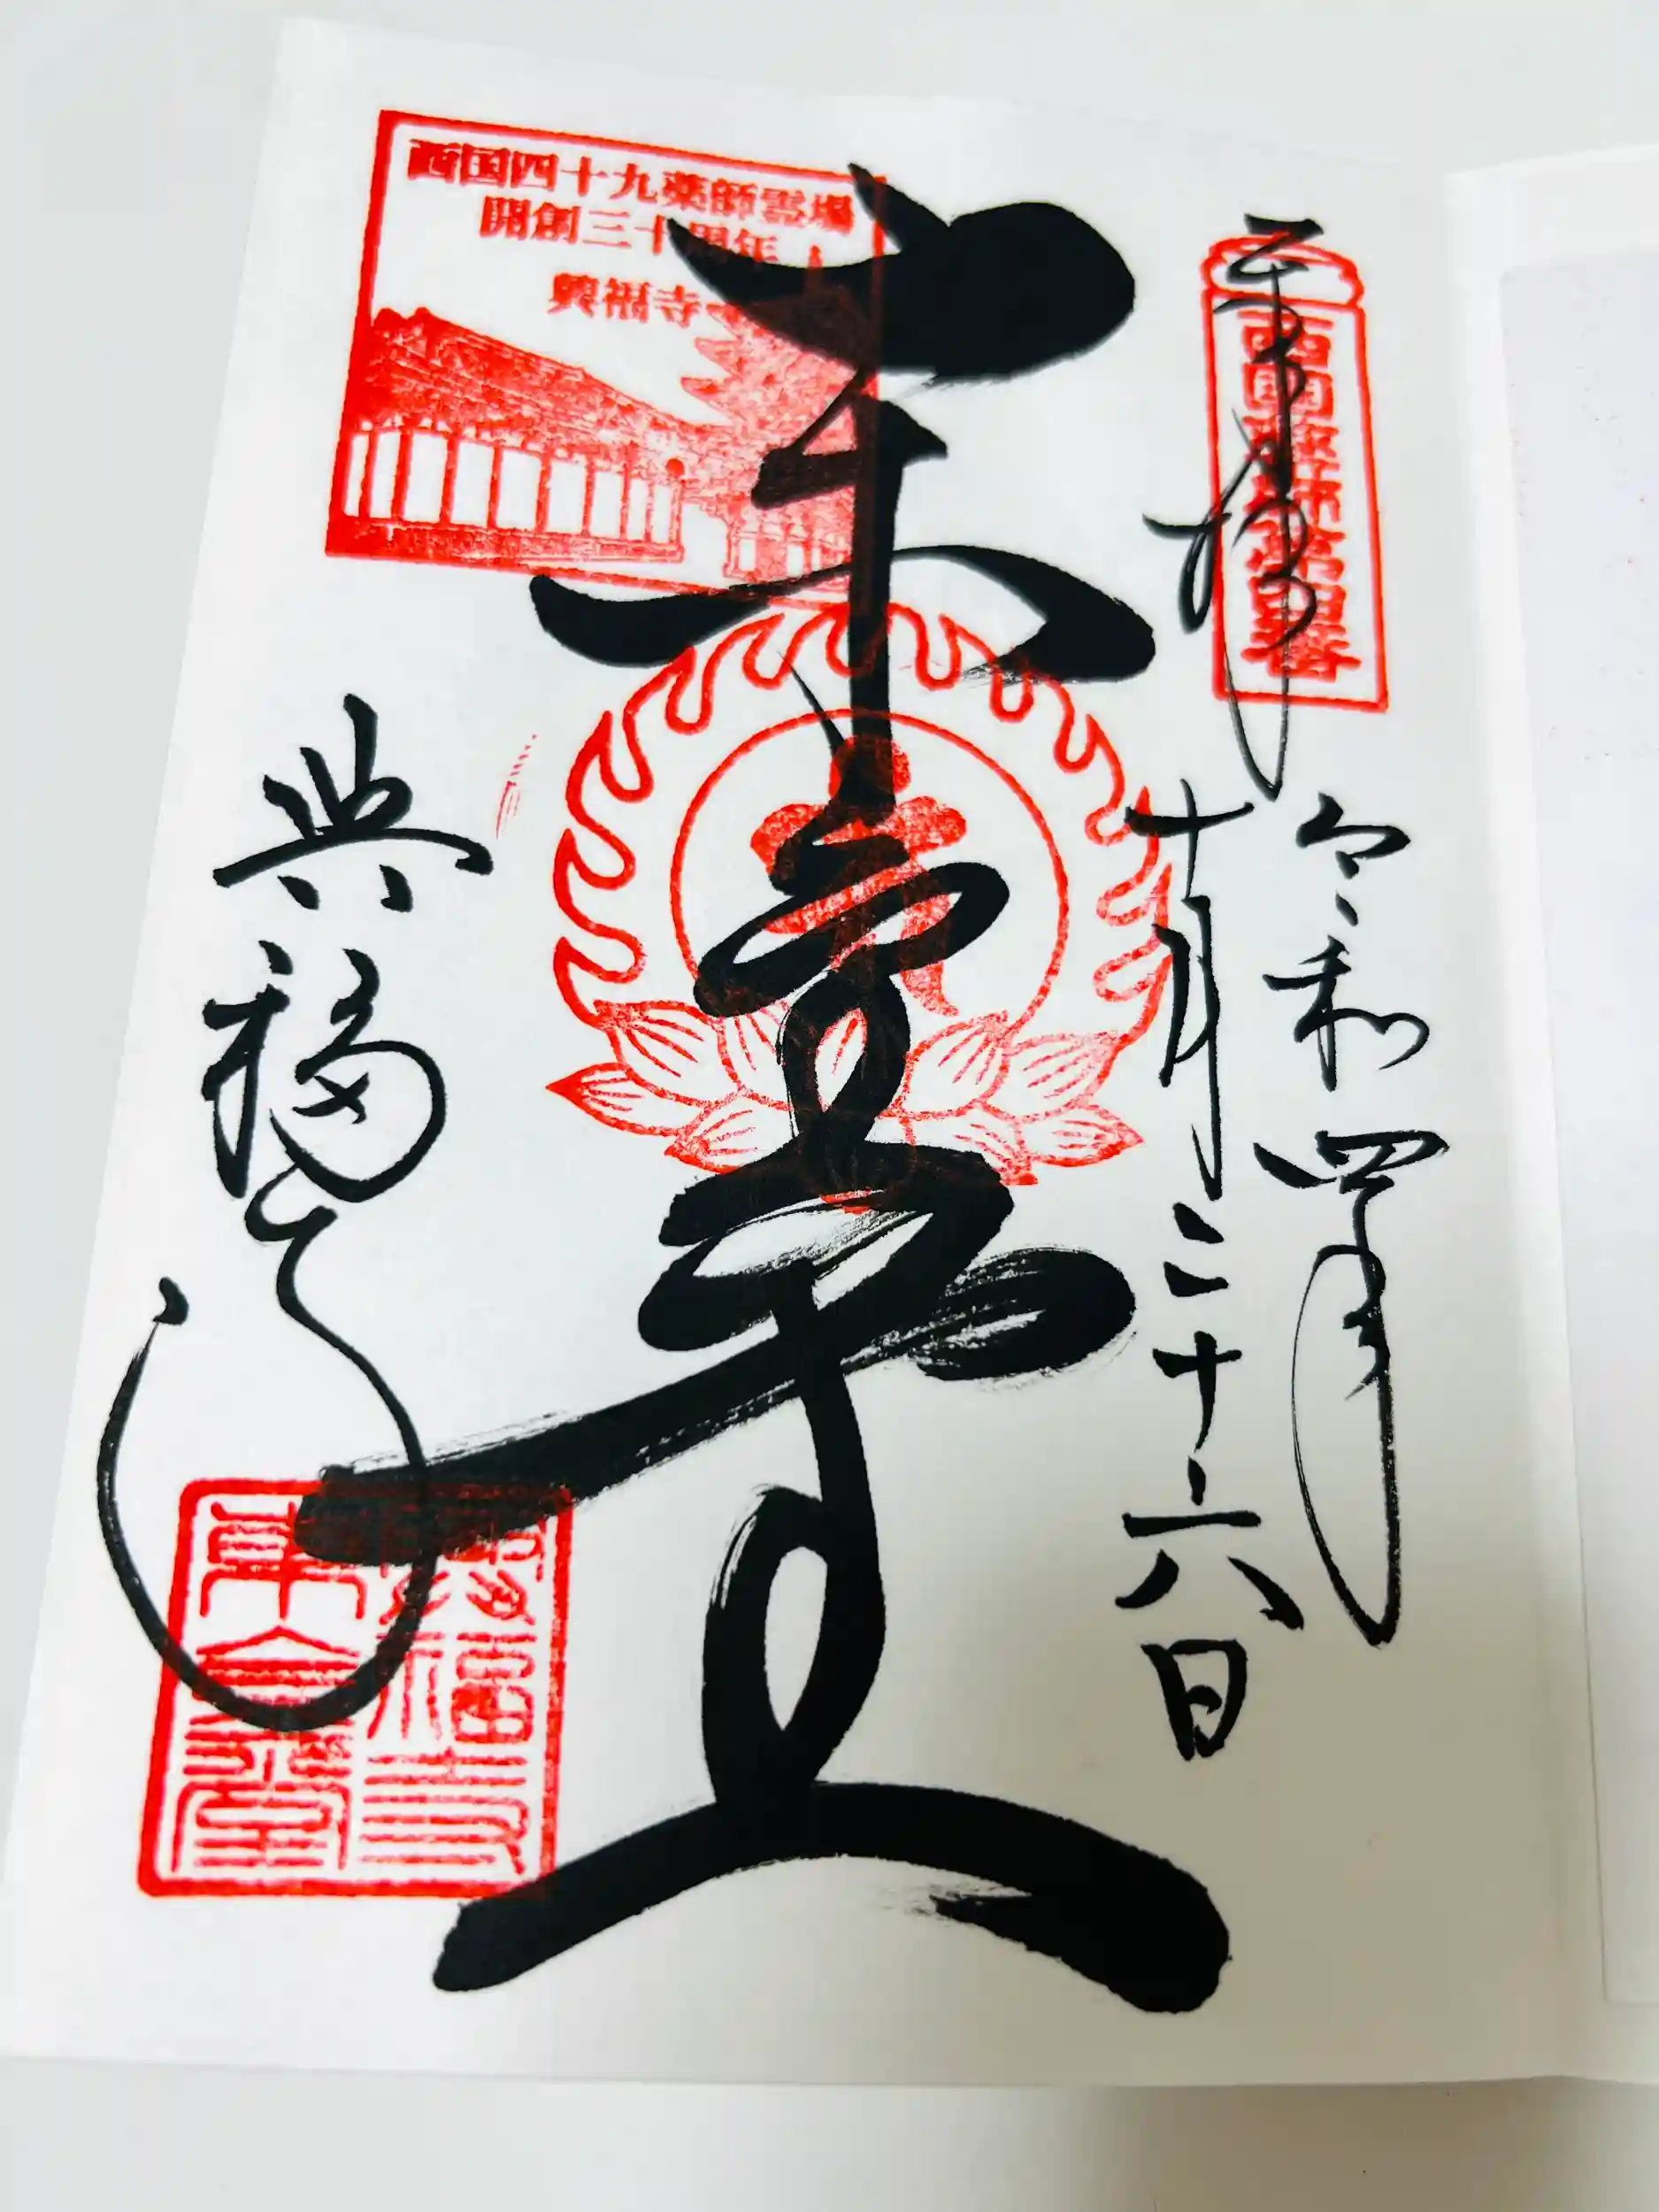 奉拝
西国薬師第四番
令和四年
十月二十六日
西国四十九薬師霊場
開創三十周年
興福寺
興福寺
興福寺
東金堂